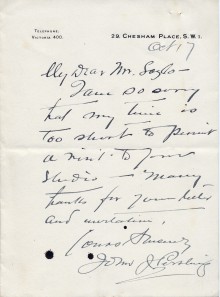 TELEPHONE,
VICTORIA 400.
29, CHESHAM PLACE, S.W.1.
Oct 17
My dear Mr.
I am so sorry
that my time is
too short to permit
a visit to your
studio – Many
thanks for your letter
and invitation.
Yours Sincerely
John J Pershing